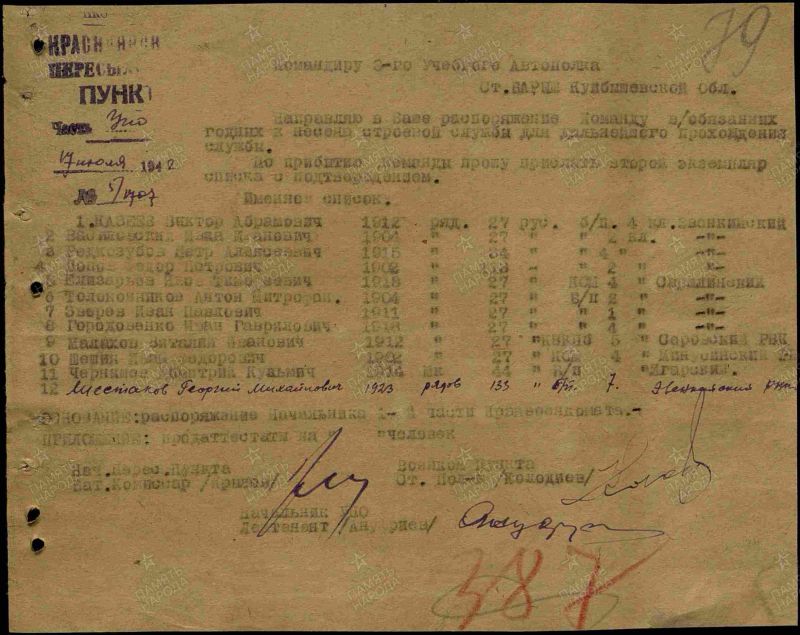 НКО
КРАСНОЯРСК
ПЕРЕСЫЛ
ПУНКТ
Часть УПО
17 июля 1942
№ 5/1707
79
Командиру 3-го Учебного Автополка
Ст. БАРЫШ Куйбышевской Обл.
Направляю в Ваше распоряжение Команду в/обязанных
годных к несению строевой службы для дальнейшего прохождения
службы.
По прибытию команды прошу прислать второй экземпляр
списка с подтверждением.
Именной список.
1. Виктор Абрамович 1912 ряд. 27 рус. б/п. 4 кл.
2 Василевский Иван Иванович 1904 " 27 " " 2 кл. -"-
3 Редкозубов Петр Алексеевич 1915 " 34 " " 4 " -"-
4 Попов Федор Петрович 1902 " 113 " " 2 " -"-
5 Елизарьев Яков Тимофеевич 1918 " 27 " КСМ 4 "
6 Толоконников Антон Митрофан. 1904 " 27 " Б/П 2 " -"-
7 Зверев Иван Павлович 1911 " 27 " " 1 " -"-
8 Городовенко Иван Гаврилович 1918 " 27 " " 4 " -"-
9 Малахов Виталий Иванович 1912 " 27 " 5 " РВК
10 Шешин Иван Федорович 1902 " 27 " КСМ 4 " Минусинский
11 Черняшов Дмитрий Кузьмич 1914 мк 44 " Б/П " Игарский.
12 Местаков Георгий Михайлович 1923 рядов 133 " б/п. 7. Эвенкийский
ОСНОВАНИЕ: распоряжение Начальника 1- й части Крайвоенкомата.-
ПРИЛОЖЕНИЕ: продаттестаты на " "человек
Нач. Перес. Пункта
Бат. Комиссар /Крылов/
Военком Пункта
Ст. Пол-к /Колодиев/
Начальник УПО
Лейтенант /Ануфриев/
387
ПАМЯТЬ НАРОДА